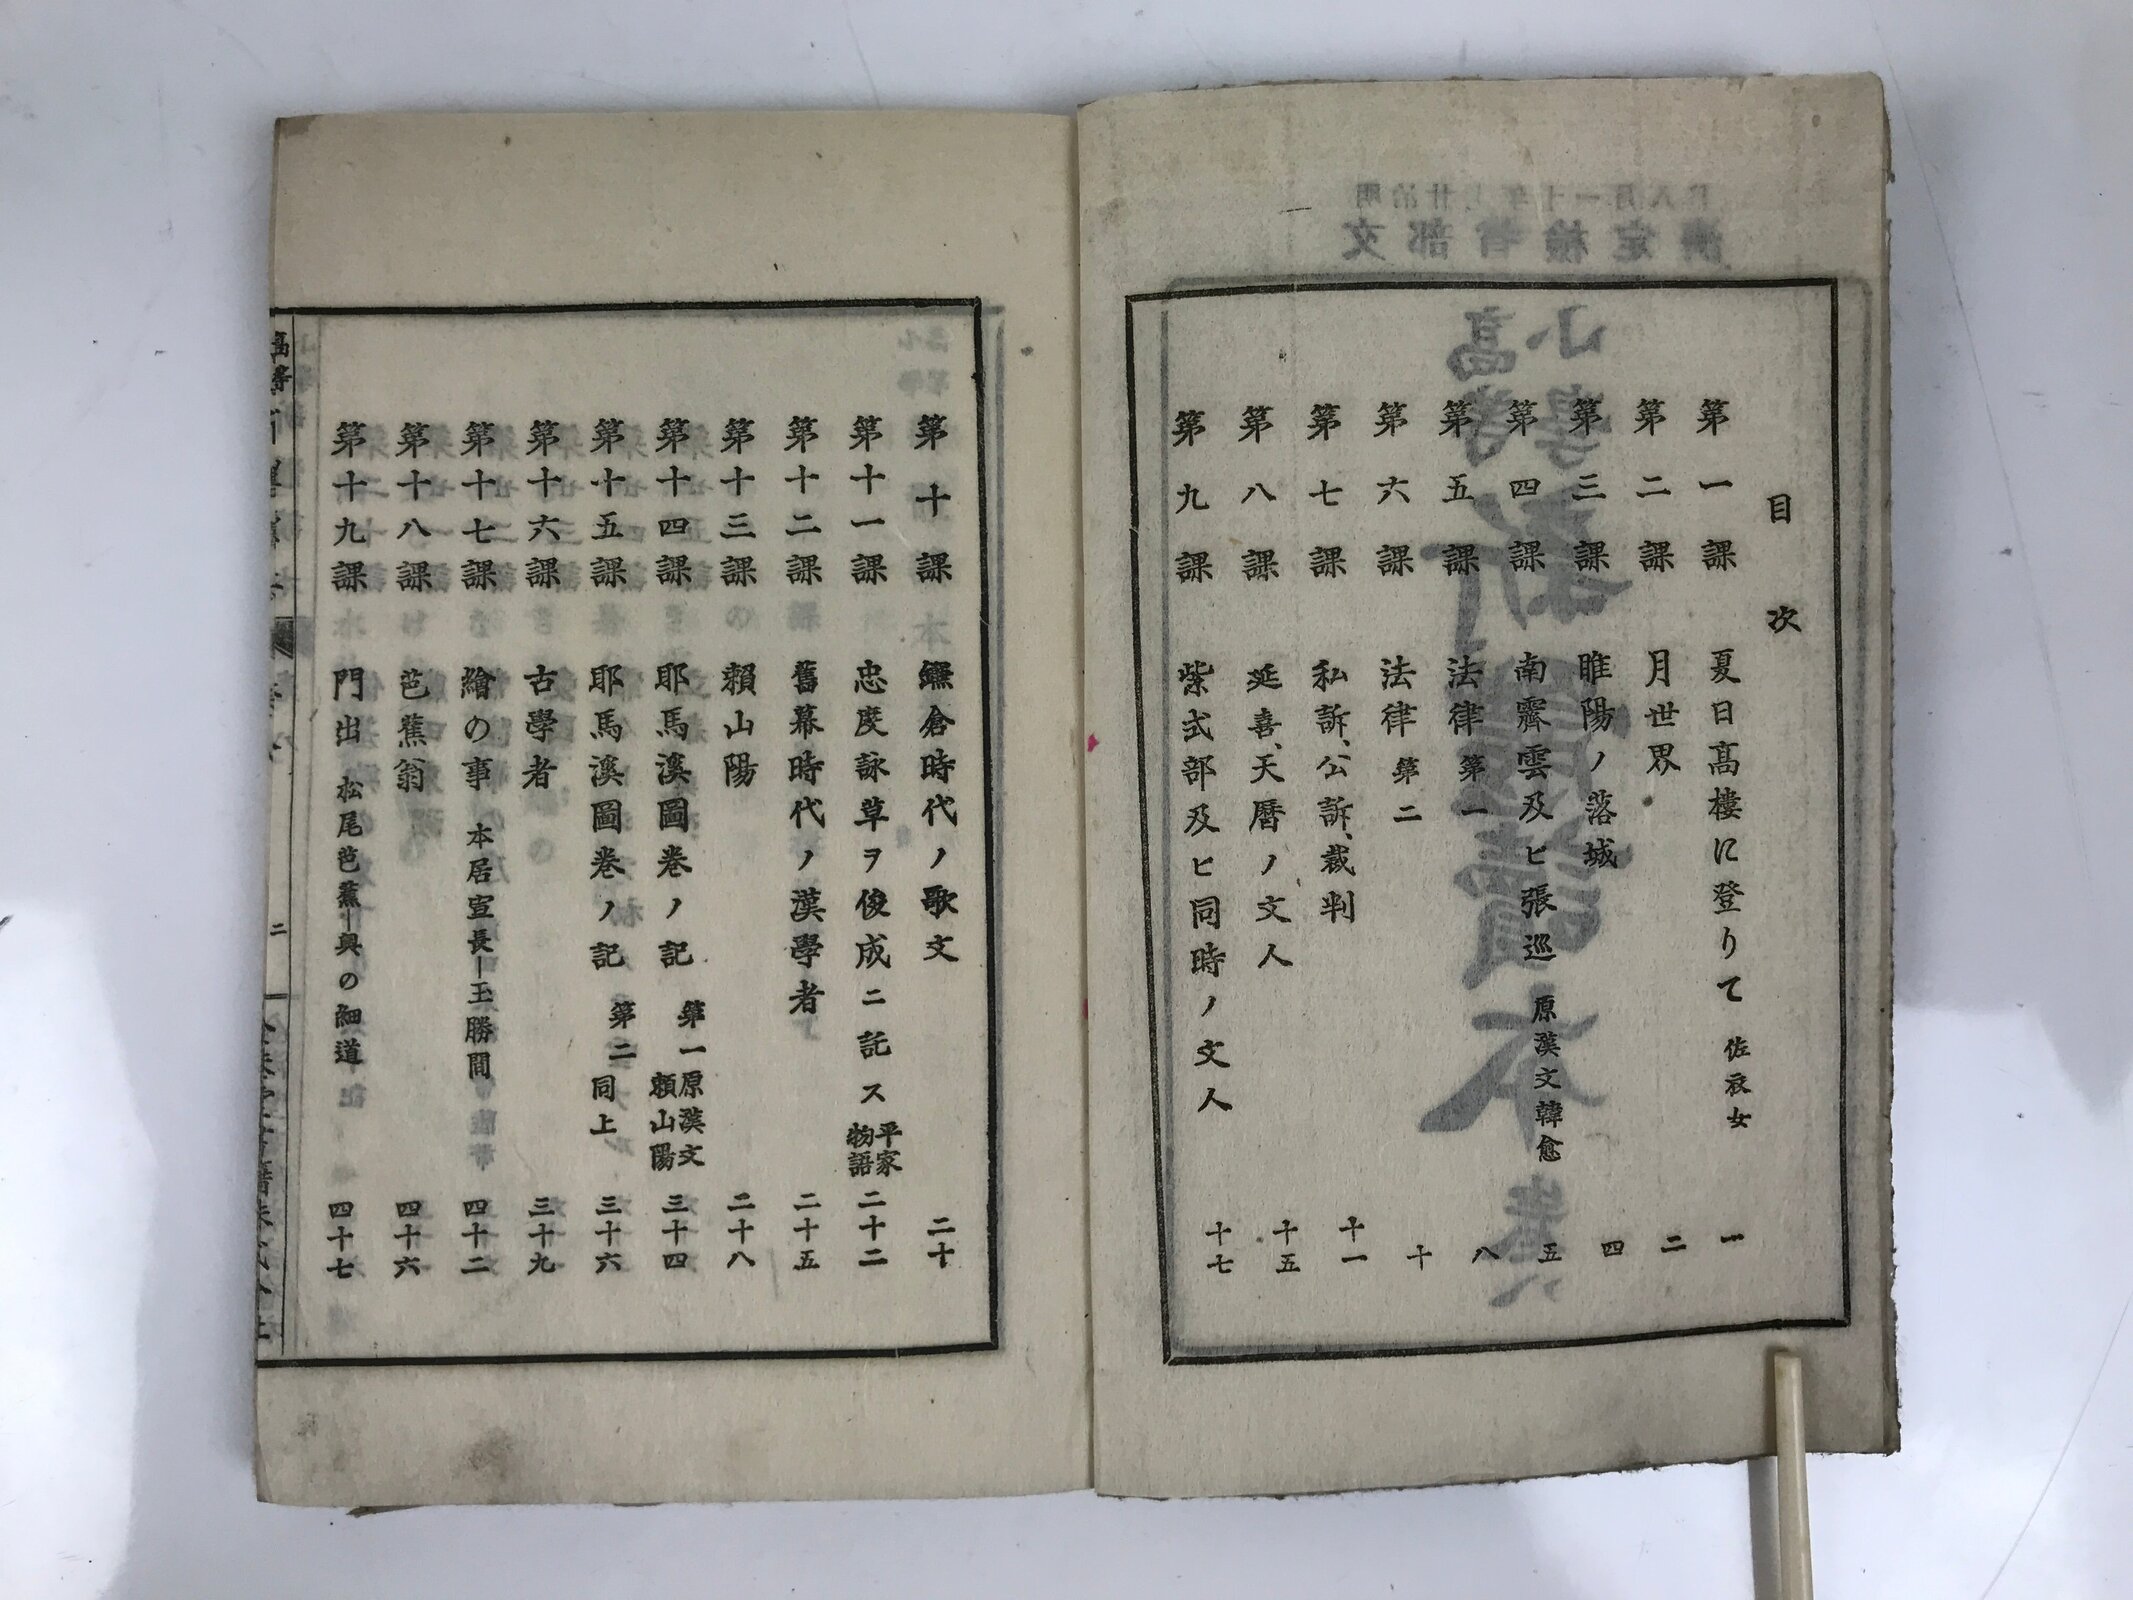 目次
第一課 夏日高樓に登りて 佐衣女 一
第二課 月世界 二
第三課 睢陽ノ落城 四
第四課 南霽雲及ヒ張巡 原漢文韓愈 五
第五課 法律 第一 八
第六課 法律 第二 十
第七課 私訴、公訴、裁判 十一
第八課 延喜、天曆ノ文人 十五
第九課 紫式部及ヒ同時ノ文人 十七
第十課 鎌倉時代ノ歌文 二十
第十一課 忠度詠草ヲ俊成ニ託ス 平家物語 二十二
第十二課 舊幕時代ノ漢學者 二十五
第十三課 賴山陽 二十八
第十四課 耶馬溪圖卷ノ記 第一 原漢文賴山陽 三十四
第十五課 耶馬溪圖卷ノ記 第二 同上 三十六
第十六課 古學者 三十九
第十七課 繪の事 本居宣長―玉勝間 四十二
第十八課 芭蕉翁 四十六
第十九課 門出 松尾芭蕉―奥の細道 四十七
二